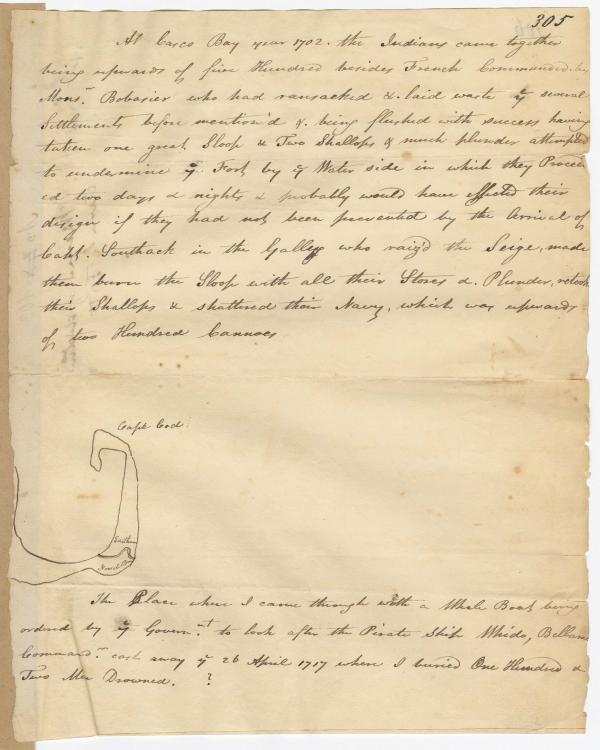 305
At Casco Bay year 1702. the Indians came together
being upwards of five Hundred besides French Commanded by
Monsr. Bobasier who had ransacked & laid waste ye several
Settlements before mention'd &. being flushed with success having
taken one great Sloop & Two Shallops & much plunder attempted
to undermine ye. Fort by ye Water side in which they Proceed
ed two days & nights & probably would have effected their
design if they had not been prevented by the Arrival of
Capt. Southack in the Galley who raiz'd the Seige, made
them burn the Sloop with all their Stores &. Plunder, retook
their Shallops & shattered their Navy, which was upwards
of two Hundred Cannoes
Cape Cod
Eastham
The Place where I came through with a Whale Boat being
ordered by ye Governmt to look after the Pirate Ship Whido, Bellame
Commandr. cast away ye 26 April 1717 where I buried One Hundred &
Two Men Drowned. ?